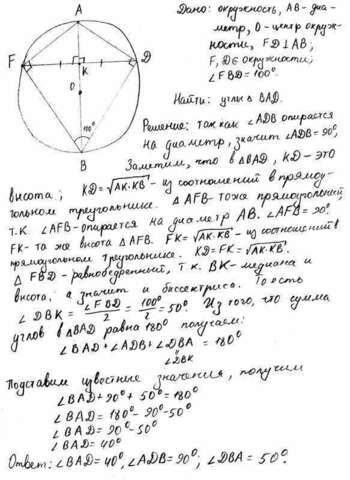 A
F
D
K
O
100°
B
Дано: окружность, AB-диа-
метр, O-центр окруж-
ности, FD⊥AB;
F, D∈ окружности;
∠FBD=100°.
Найти: углы △BAD.
Решение: так как ∠ADB опирается
на диаметр, значит ∠ADB=90°,
Заметим, что в △BAD, KD-это
высота; KD=√AK·KB - из соотношений в прямоу-
гольном треугольнике. △AFB-тоже прямоугольный,
т.к. ∠AFB-опирается на диаметр AB. ∠AFB=90°.
FK-та же высота △AFB. FK=√AK·KB - из соотношений в
прямоугольном треугольнике. KD=FK=√AK·KB.
△FBD-равнобедренный, т.к. BK-медиана и
высота, а значит и биссектриса. То есть
∠DBK=∠FBD/2=100°/2=50°. Из того, что сумма
углов в △BAD равна 180° получаем:
∠BAD+∠ADB+∠DBA=180°
∠DBK
Подставим известные значения, получим
∠BAD+90°+50°=180°
∠BAD=180°-90°-50°
∠BAD=90°-50°
∠BAD=40°
Ответ: ∠BAD=40°, ∠ADB=90°; ∠DBA=50°.